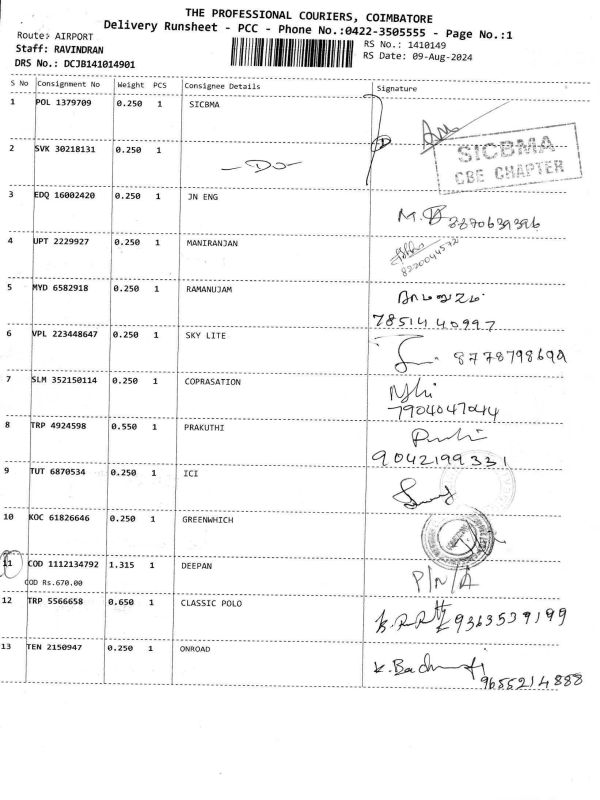 THE PROFESSIONAL COURIERS, COIMBATORE
Delivery Runsheet - PCC - Phone No.:0422-3505555 - Page No.:1
Route: AIRPORT
Staff: RAVINDRAN
DRS No.: DCJB141014901
RS No.: 1410149
RS Date: 09-Aug-2024
S No Consignment No Weight PCS Consignee Details Signature
1 POL 1379709 0.250 1 SICBMA
SICBMA
CBE CHAPTER
2 SVK 30218131 0.250 1 —DO—
3 EDQ 16002420 0.250 1 JN ENG
8870639396
4 UPT 2229927 0.250 1 MANIRANJAN
8220044572
5 MYD 6582918 0.250 1 RAMANUJAM
7851440997
6 VPL 223448647 0.250 1 SKY LITE
8778798699
7 SLM 352150114 0.250 1 COPRASATION
7904047044
8 TRP 4924598 0.550 1 PRAKUTHI
9042199331
9 TUT 6870534 0.250 1 ICI
10 KOC 61826646 0.250 1 GREENWHICH
11 COD 1112134792 1.315 1 DEEPAN P/N/A
COD Rs.670.00
12 TRP 5566658 0.650 1 CLASSIC POLO
9363539199
13 TEN 2150947 0.250 1 ONROAD
9655214888